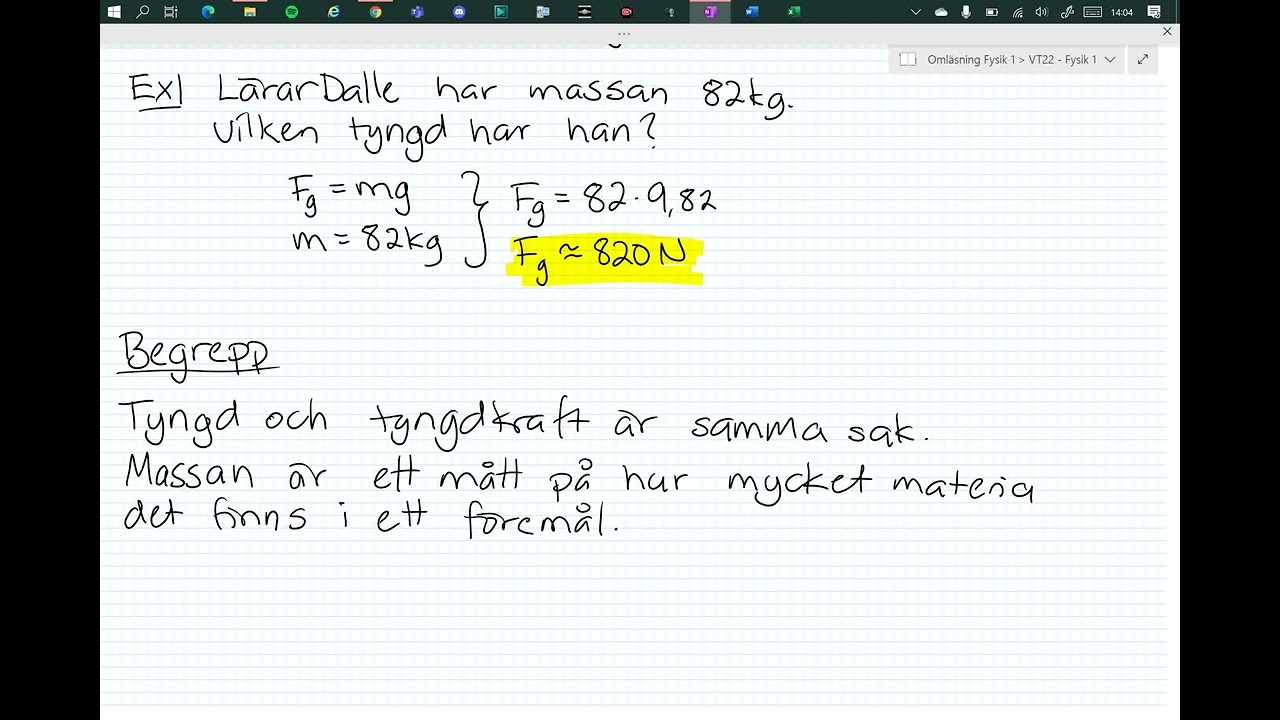 14:04
Omläsning Fysik 1 > VT22 - Fysik 1
Ex1 LärarDalle har massan 82kg.
Vilken tyngd har han?
Fg = mg
m = 82kg
Fg = 82·9,82
Fg ≈ 820 N
Begrepp
Tyngd och tyngdkraft är samma sak.
Massan är ett mått på hur mycket materia
det finns i ett föremål.